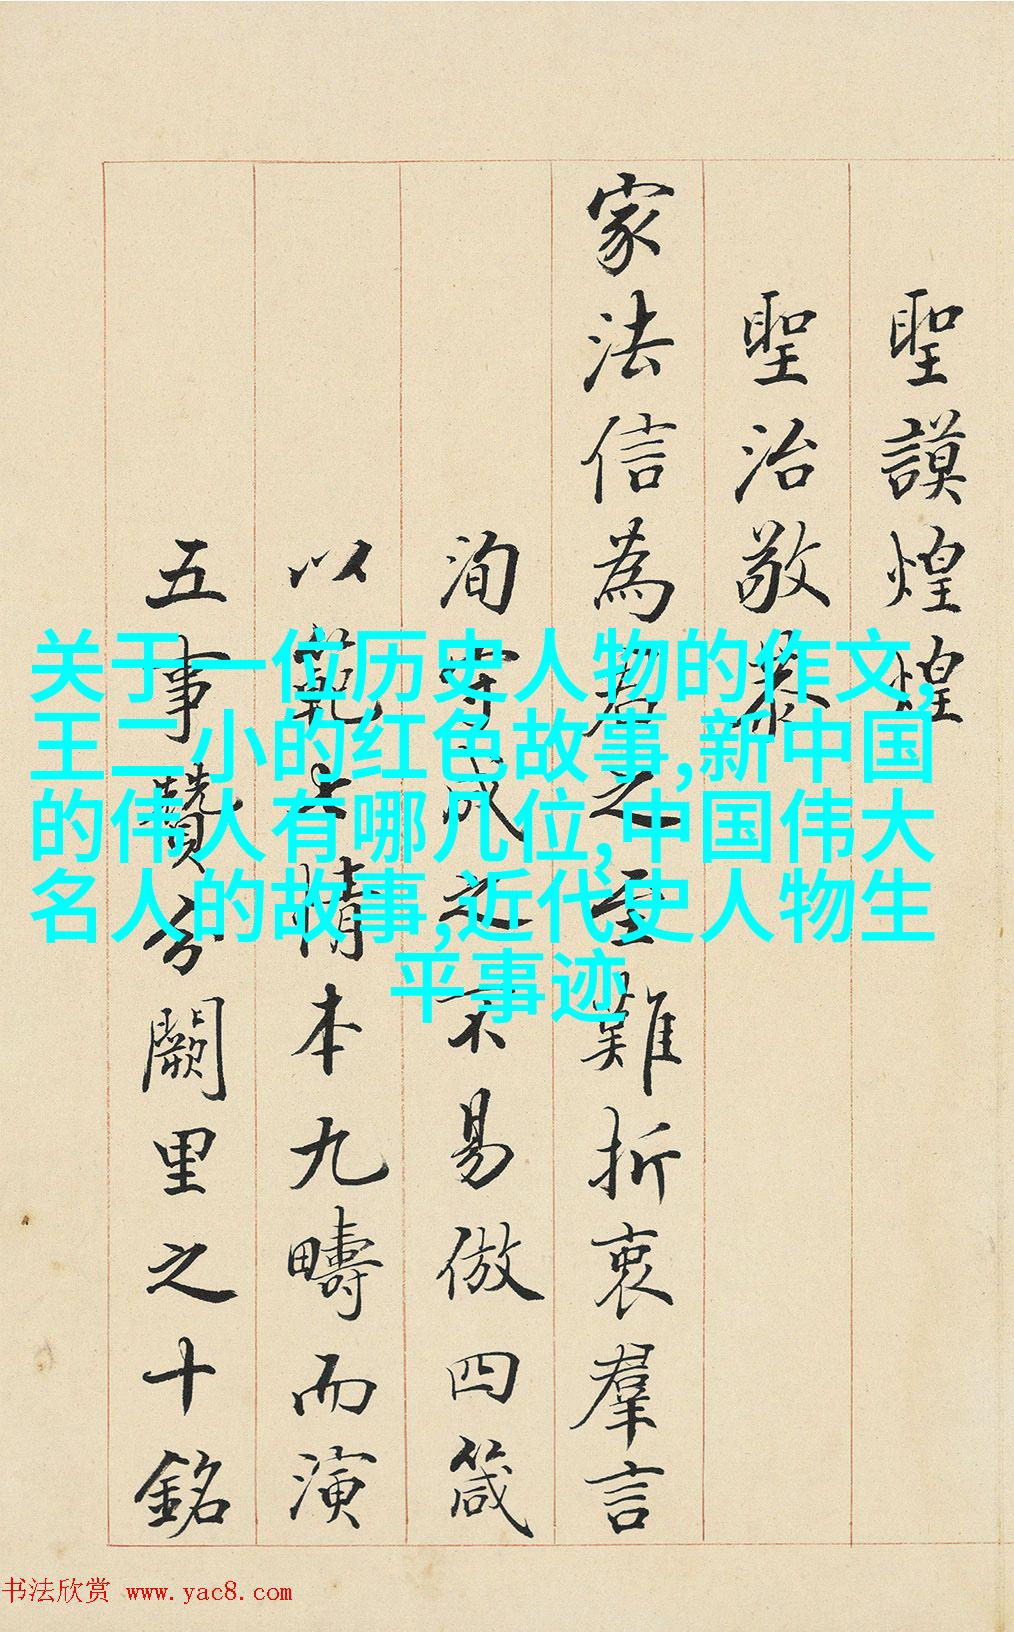 聖謨煌煌
聖治敬
家法信為君之至難折衷羣言
洵守成之不易倣四箴
以範情本九疇而演
五事贊分闕里之十銘
关于一位历史人物的作文,
王二小的红色故事,新中国
的伟人有哪几位,中国伟大
名人的故事,近代史人物生
平事迹
书法欣赏 www.yac8.com